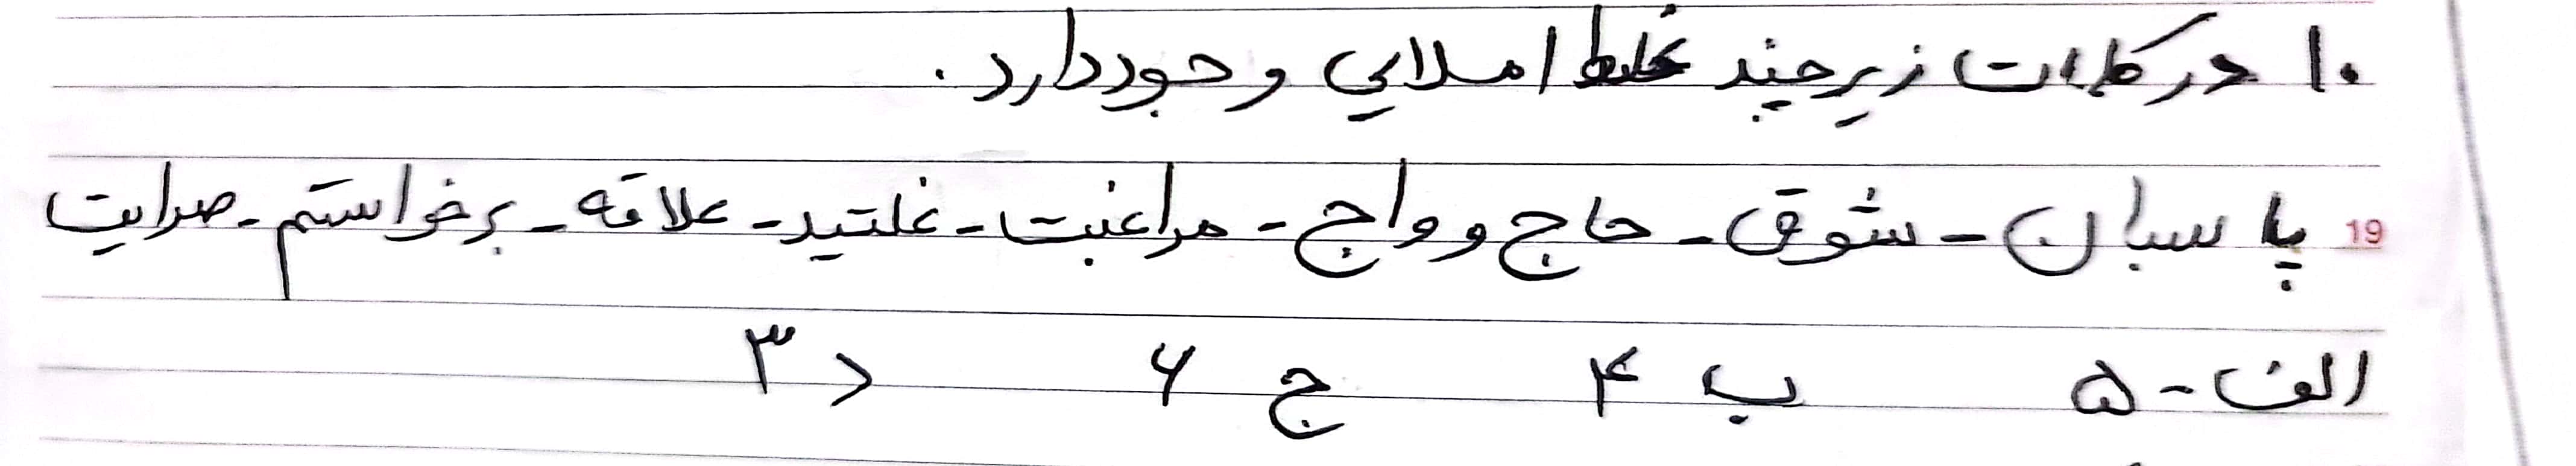 ۱۰ در کلمات زیر چند غلط املایی وجود دارد.
19 پاسبان - شوق - حاج و واج - مراغبت - غلتید - علاقه - برخواستم - صرایت
الف - ۵ ب ۴ ج ۶ د ۳